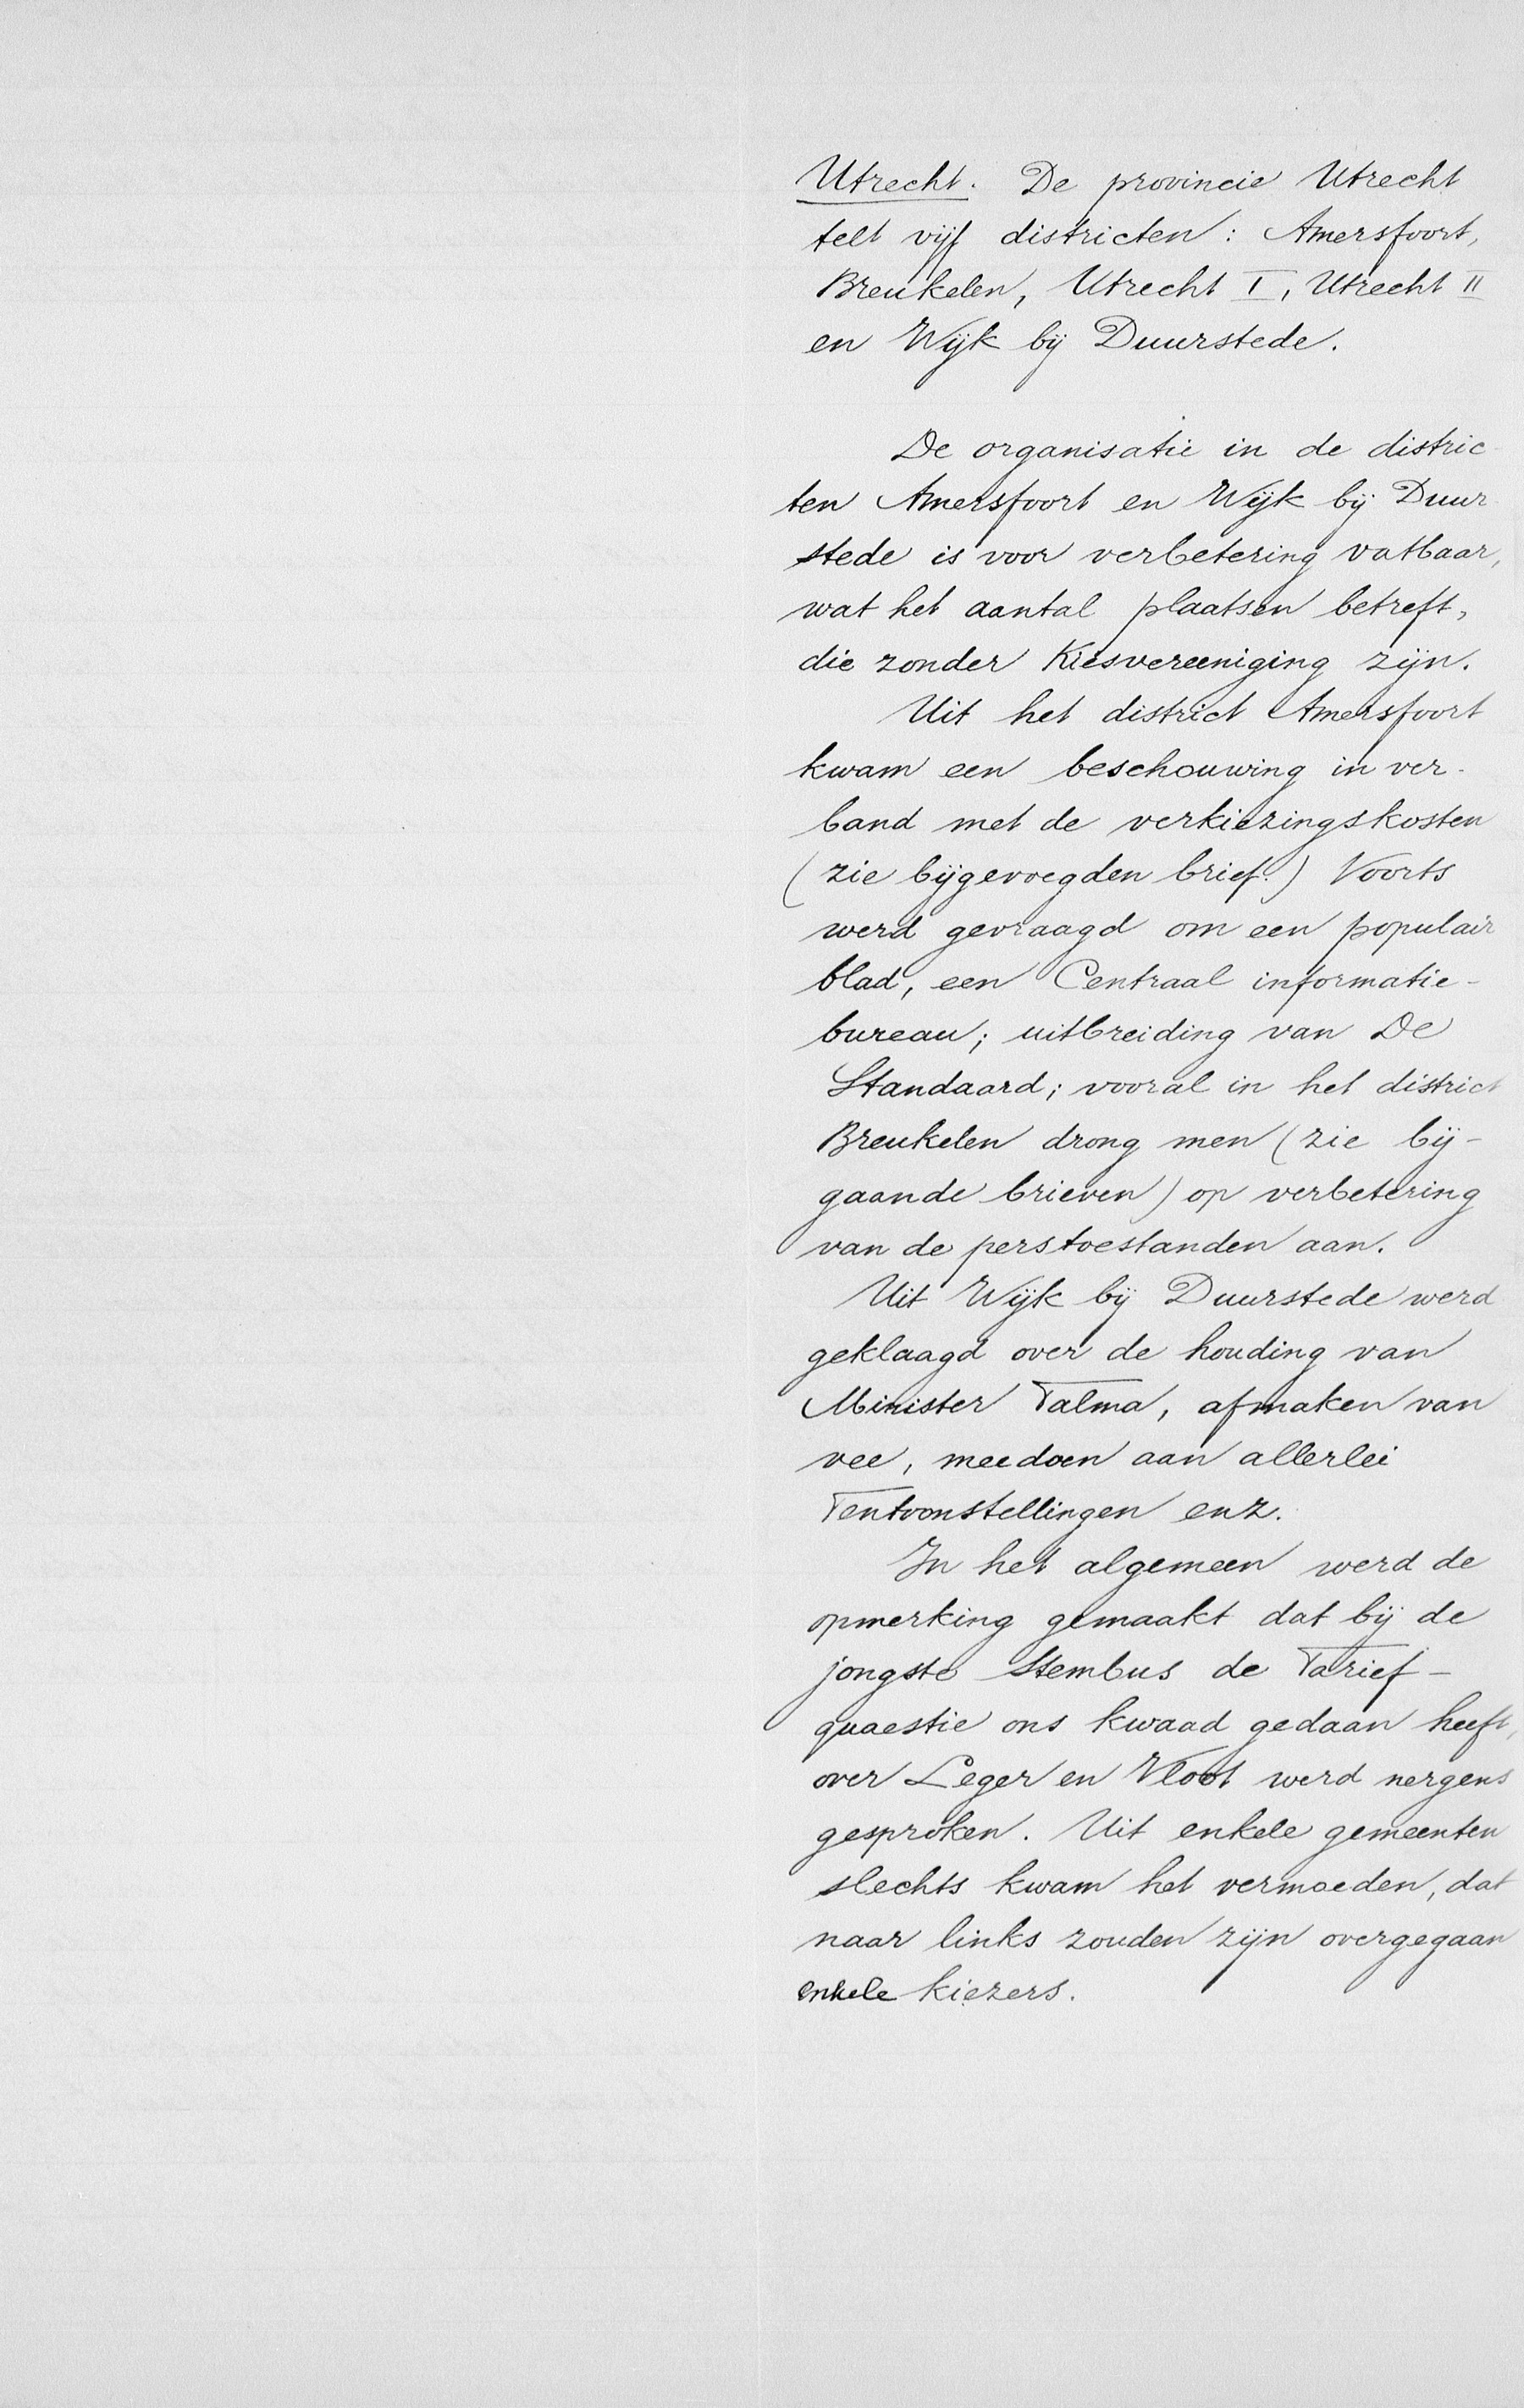 Utrecht. De provincie Utrecht
telt vijf districten: Amersfoort,
Breukelen, Utrecht I, Utrecht II
en Wijk bij Duurstede.
De organisatie in de distric
ten Amersfoort en Wijk bij Duur
stede is voor verbetering vatbaar,
wat het aantal plaatsen betreft,
die zonder Kiesvereeniging zijn.
Uit het district Amersfoort
kwam een beschouwing in ver-
band met de verkiezingskosten
(zie bijgevoegden brief.) Voorts
werd gevraagd om een populair
blad, een Centraal informatie-
bureau; uitbreiding van De
Standaard; vooral in het district
Breukelen drong men (zie bij-
gaande brieven) op verbetering
van de perstoestanden aan.
Uit Wijk bij Duurstede werd
geklaagd over de houding van
Minister Talma, afmaken van
vee, meedoen aan allerlei
Tentoonstellingen enz.
In het algemeen werd de
opmerking gemaakt dat bij de
jongste Stembus de Tarief-
quaestie ons kwaad gedaan heeft,
over Leger en Vloot werd nergens
gesproken. Uit enkele gemeenten
slechts kwam het vermoeden, dat
naar links zouden zijn overgegaan
enkele kiezers.